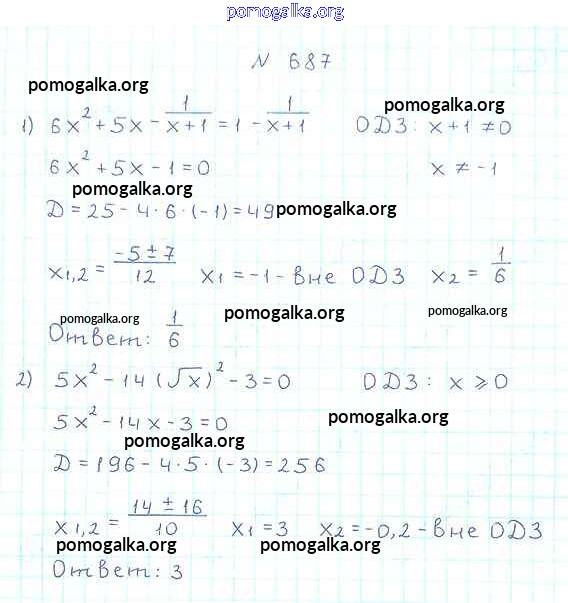 pomogalka.org
N 687
pomogalka.org
pomogalka.org
1) 6x² + 5x - 1/(x+1) = 1 - 1/(x+1) ОДЗ: x+1 ≠ 0
6x² + 5x - 1 = 0 x ≠ -1
pomogalka.org
D = 25 - 4·6·(-1) = 49 pomogalka.org
x1,2 = (-5 ± 7)/12 x1 = -1 - вне ОДЗ x2 = 1/6
pomogalka.org pomogalka.org pomogalka.org
Ответ: 1/6
2) 5x² - 14(√x)² - 3 = 0 ОДЗ: x ⩾ 0
5x² - 14x - 3 = 0 pomogalka.org
pomogalka.org
D = 196 - 4·5·(-3) = 256
x1,2 = (14 ± 16)/10 x1 = 3 x2 = -0,2 - вне ОДЗ
pomogalka.org pomogalka.org
Ответ: 3